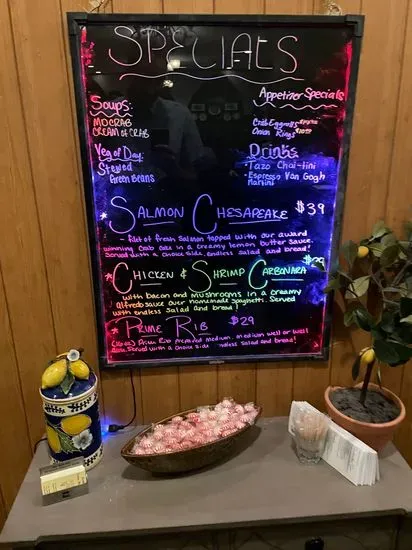 SPECIALS
Soups:
MD CRAB
CREAM of CRAB
Veg of Day:
Stewed
Green Beans
Appetizer Specials
Crab Eggrolls
Onion Rings
Drinks
- Tazo Chai-tini
- Espresso Van Gogh
Martini
SALMON CHESAPEAKE $39
- filet of fresh Salmon topped with our award
winning Crab cake in a creamy lemon butter sauce.
Served with a choice side, endless salad and bread!
CHICKEN & SHRIMP CARBONARA
with bacon and mushrooms in a creamy
alfredo sauce over homemade spaghetti. Served
with endless salad and bread!
PRIME RIB $29
Prime Rib prepared medium, medium well or well
done. Served with a choice side endless salad and bread!